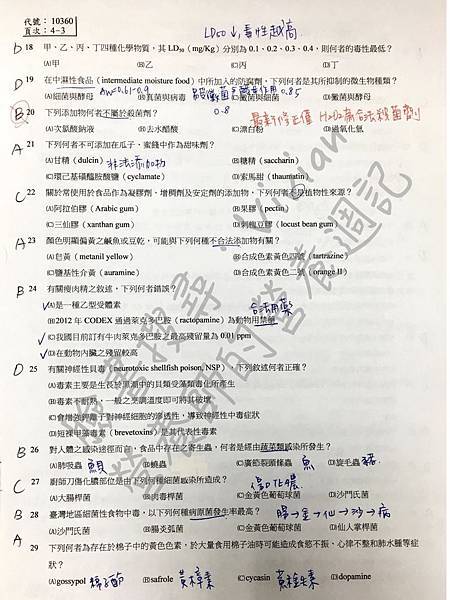 代號：10360
頁次：4-3
LD50↓，毒性越高
D 18 甲、乙、丙、丁四種化學物質，其 LD50 (mg/Kg) 分別為 0.1、0.2、0.3、0.4，則何者的毒性最低？
(A)甲 (B)乙 (C)丙 (D)丁
D 19 在中濕性食品（intermediate moisture food）中所加入的防腐劑，下列何者是其所抑制的微生物種類？
(A)細菌與酵母 (B)真菌與病毒 (C)黴菌與細菌 (D)黴菌與酵母
B 20 下列添加物何者不屬於殺菌劑？
(A)次氯酸鈉液 (B)去水醋酸 (C)漂白粉 (D)過氧化氫
A 21 下列何者不可添加在瓜子、蜜餞中作為甜味劑？
(A)甘精（dulcin） 非法添加物 (B)糖精（saccharin）
(C)環己基磺醯胺酸鹽（cyclamate） (D)索馬甜（thaumatin）
C 22 關於常使用於食品作為凝膠劑、增稠劑及安定劑的添加物，下列何者不是植物性來源？
(A)阿拉伯膠（Arabic gum） (B)果膠（pectin）
(C)三仙膠（xanthan gum） (D)刺槐豆膠（locust bean gum）
A 23 顏色明顯偏黃之鹹魚或豆乾，可能與下列何種不合法添加物有關？
(A)皂黃（metanil yellow） (B)合成色素黃色四號（tartrazine）
(C)鹽基性介黃（auramine） (D)合成色素黃色二號（orange II）
B 24 有關瘦肉精之敘述，下列何者錯誤？
(A)是一種乙型受體素 合法用藥
(B)2012 年 CODEX 通過萊克多巴胺（ractopamine）為動物用禁藥
(C)我國目前訂有牛肉萊克多巴胺之最高殘留量為 0.01 ppm
(D)在動物內臟之殘留較高
D 25 有關神經性貝毒（neurotoxic shellfish poison, NSP），下列敘述何者正確？
(A)毒素主要是生長於黑潮中的貝類受藻類毒化所產生
(B)毒素不耐熱，一般之烹調溫度即可將其破壞
(C)會增強鉀離子對神經細胞的滲透性，導致神經性中毒症狀
(D)短裸甲藻毒素（brevetoxins）是其代表性毒素
B 26 對人體之感染途徑而言，食品中存在之寄生蟲，何者是經由蔬菜類感染所發生？
(A)肺吸蟲 (B)蟯蟲 (C)廣節裂頭絛蟲 魚 (D)旋毛蟲 豬
C 27 廚師刀傷化膿部位是由下列何種細菌感染所造成？
(A)大腸桿菌 (B)肉毒桿菌 (C)金黃色葡萄球菌 (D)沙門氏菌
B 28 臺灣地區細菌性食物中毒，以下列何種病原菌發生率最高？ 腸→金→仙→沙→病
(A)沙門氏菌 (B)腸炎弧菌 (C)金黃色葡萄球菌 (D)仙人掌桿菌
A 29 下列何者為存在於棉子中的黃色色素，於大量食用棉子油時可能造成食慾不振、心律不整和肺水腫等症
狀？
(A)gossypol 棉子酚 (B)safrole 黃樟素 (C)cycasin (D)dopamine